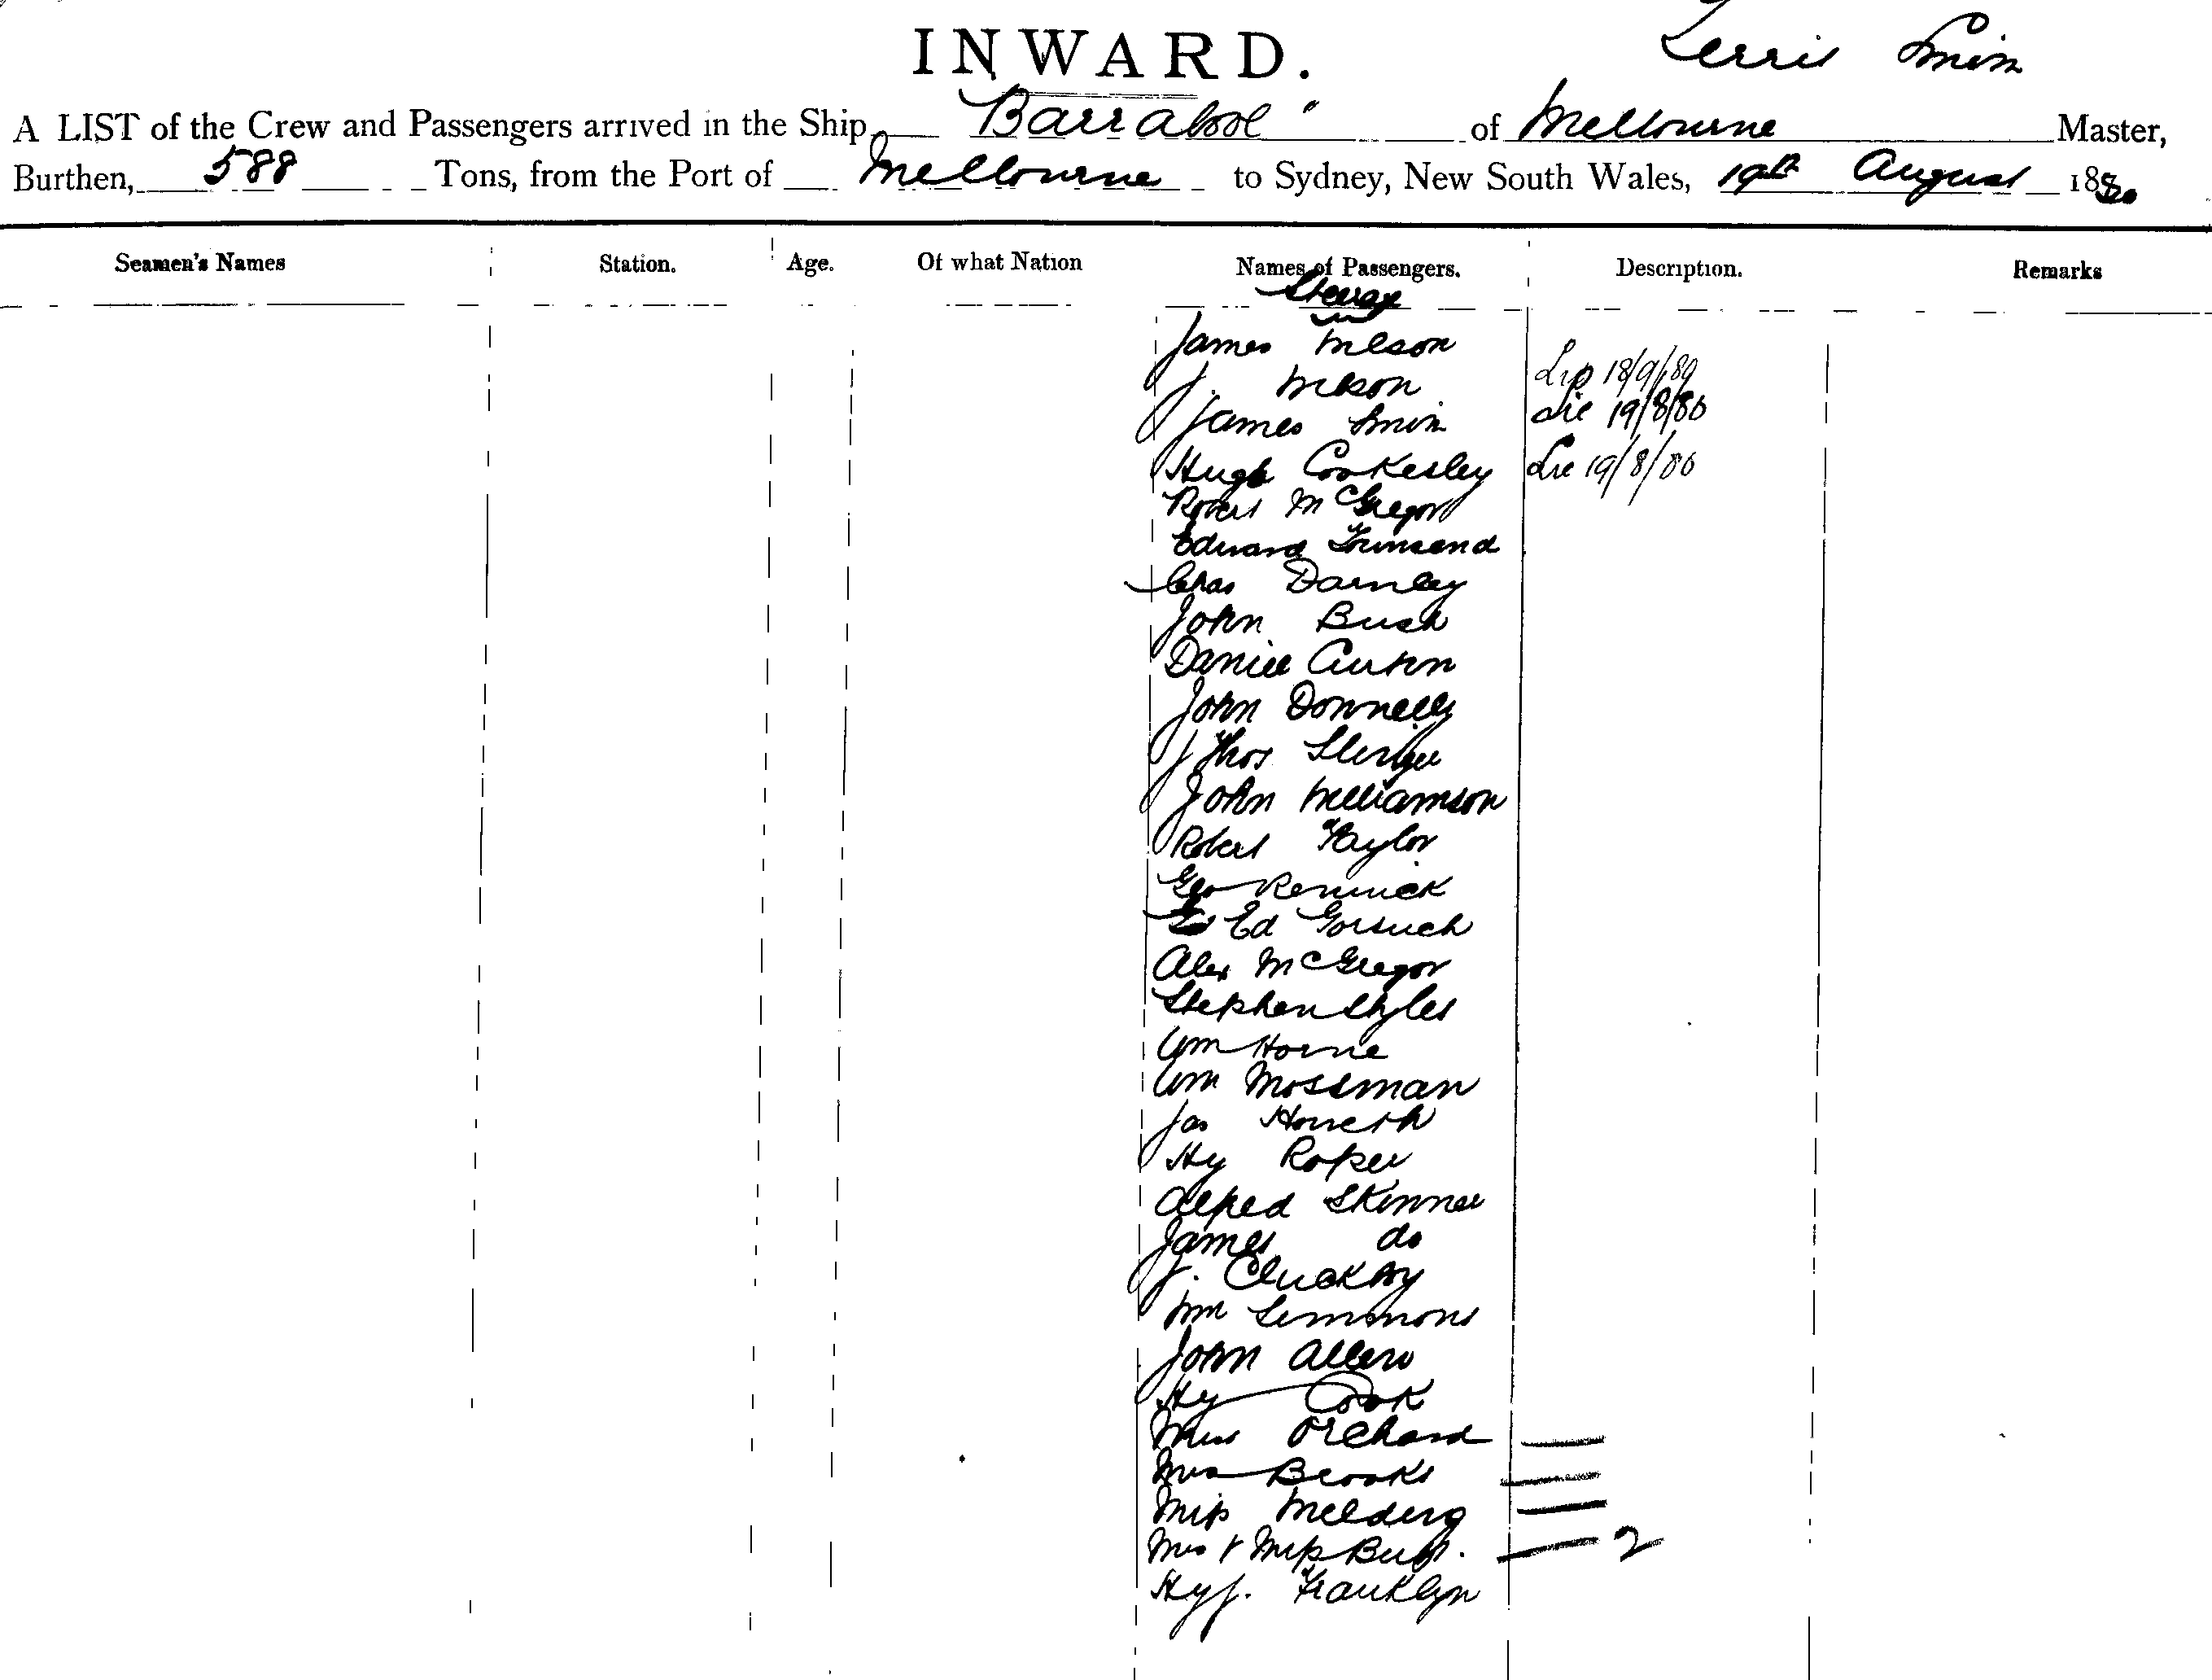 INWARD.
Smith
A LIST of the Crew and Passengers arrived in the Ship "Barrabool" of Melbourne Master,
Burthen, 588 Tons, from the Port of Melbourne to Sydney, New South Wales, 19th August 1880
Seamen's Names Station. Age. Of what Nation Names of Passengers. Description. Remarks
Steerage
James Wilson
J. 18/9/80
James Smith 19/8/80
Hugh Cookesley 19/8/80
Robert McGregor
Edward Townsend
Chas Darnley
John Bush
Daniel
John Donnelly
Thos
John Williamson
Robert Taylor
Geo Renwick
Ed Gorsuch
Alex McGregor
Stephen Styles
Wm Horne
Wm Mossman
Jas Howeth
Hy Roper
Alfred Skinner
James do
J.
Wm Simmons
John Allen
Hy Cook
Miss Orchard
Mrs Brooks
Miss
Mrs & Miss 2
Hy J. Franklyn